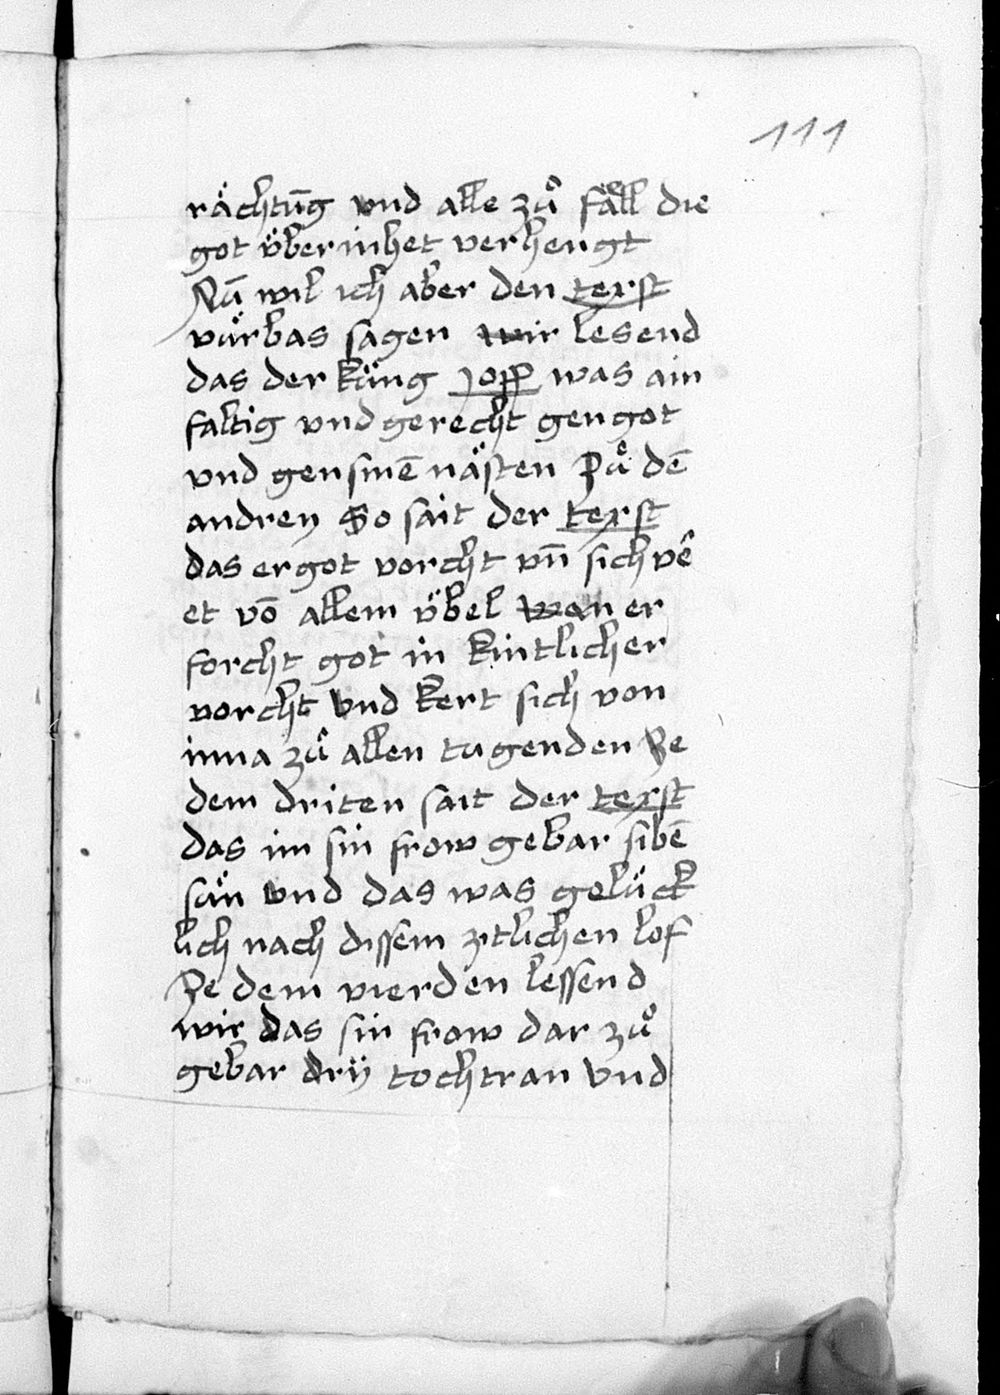 111
rächtūg vnd alle zuͦ fäll die
got über inhet verhengt
Nū wil ich aber den texst
vürbas sagen wir lesend
das der küng Jopp was ain
faltig vnd gerecht gen got
vnd gen sinē nästen Zuͦ dē
andren So sait der texst
das er got vorcht vn̄ sich vē
et vō allem übel wan er
forcht got in kintlicher
vorcht vnd kert sich von
inna zuͦ allen tugenden Ze
dem driten sait der texst
das im sin frow gebar sibē
sün vnd das was gelück
lich nach dissem zitlichen lof
Ze dem vierden lessend
wir das sin frow dar zuͦ
gebar drÿ tochtran vnd